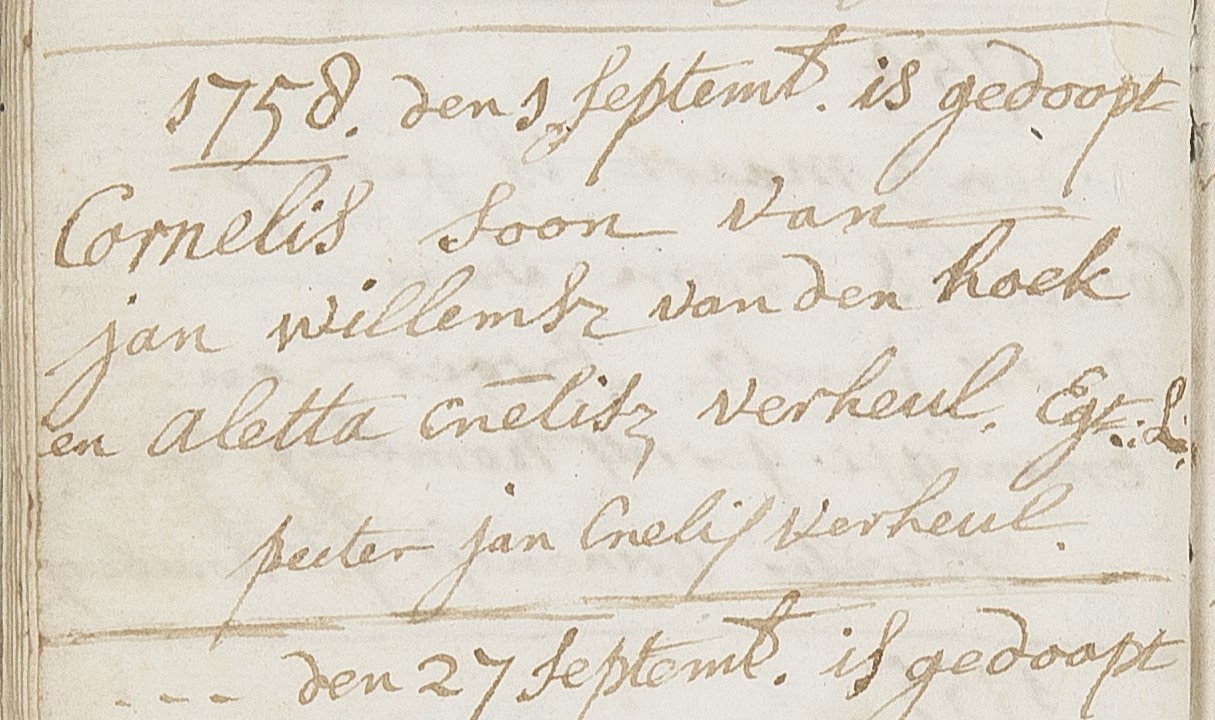 1758. den 1 septembr. is gedoopt
Cornelis soon van
jan willemsz van den hoek
en aletta cnelisz verheul. Egt:L:
peeter jan Cnelis verheul.
--- den 27 septembr. is gedoopt